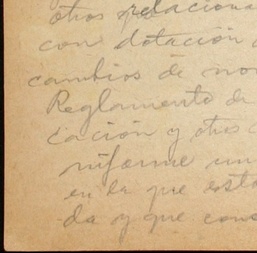 otros relaciona
con dotación
cambios de no
Reglamento de
cación y otros
informe un
en la que esta
da y que cons